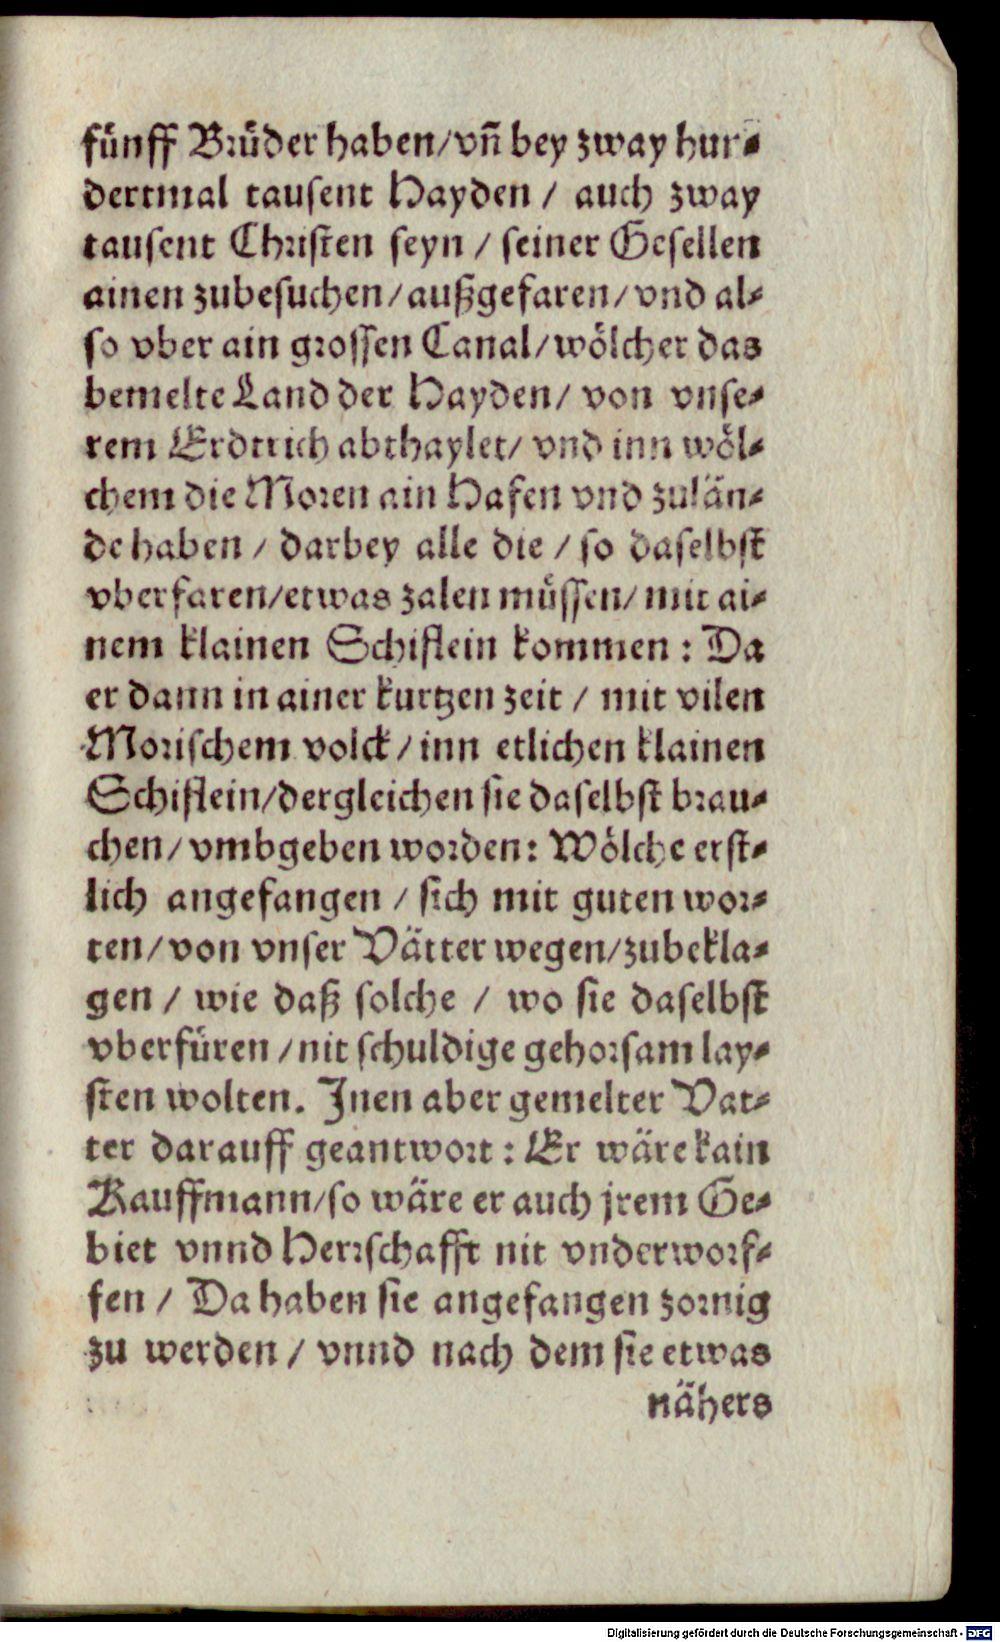 fünff Brüder haben/vñ bey zway hur⸗
dertmal tausent Hayden / auch zway
tausent Christen seyn / seiner Gesellen
ainen zubesuchen/außgefaren/vnd al⸗
so vber ain grossen Canal/wölcher das
bemelte Land der Hayden/ von vnse⸗
rem Erdtrich abthaylet/ vnd inn wöl⸗
chem die Moren ain Hafen vnd zulän⸗
de haben / darbey alle die / so daselbst
vberfaren/etwas zalen müssen/ mit ai⸗
nem klainen Schiflein kommen: Da
er dann in ainer kurtzen zeit / mit vilen
Morischem volck/inn etlichen klainen
Schiflein/dergleichen sie daselbst brau⸗
chen/vmbgeben worden: Wölche erst⸗
lich angefangen / sich mit guten wor⸗
ten/von vnser Vätter wegen/zubekla⸗
gen / wie daß solche / wo sie daselbst
vberfüren/nit schuldige gehorsam lay⸗
sten wolten. Jnen aber gemelter Vat⸗
ter darauff geantwort: Er wäre kain
Kauffmann/so wäre er auch jrem Ge⸗
biet vnnd Herrschafft nit vnderworf⸗
fen / Da haben sie angefangen zornig
zu werden / vnnd nach dem sie etwas
nähers
Digitalisierung gefördert durch die Deutsche Forschungsgemeinschaft - DFG